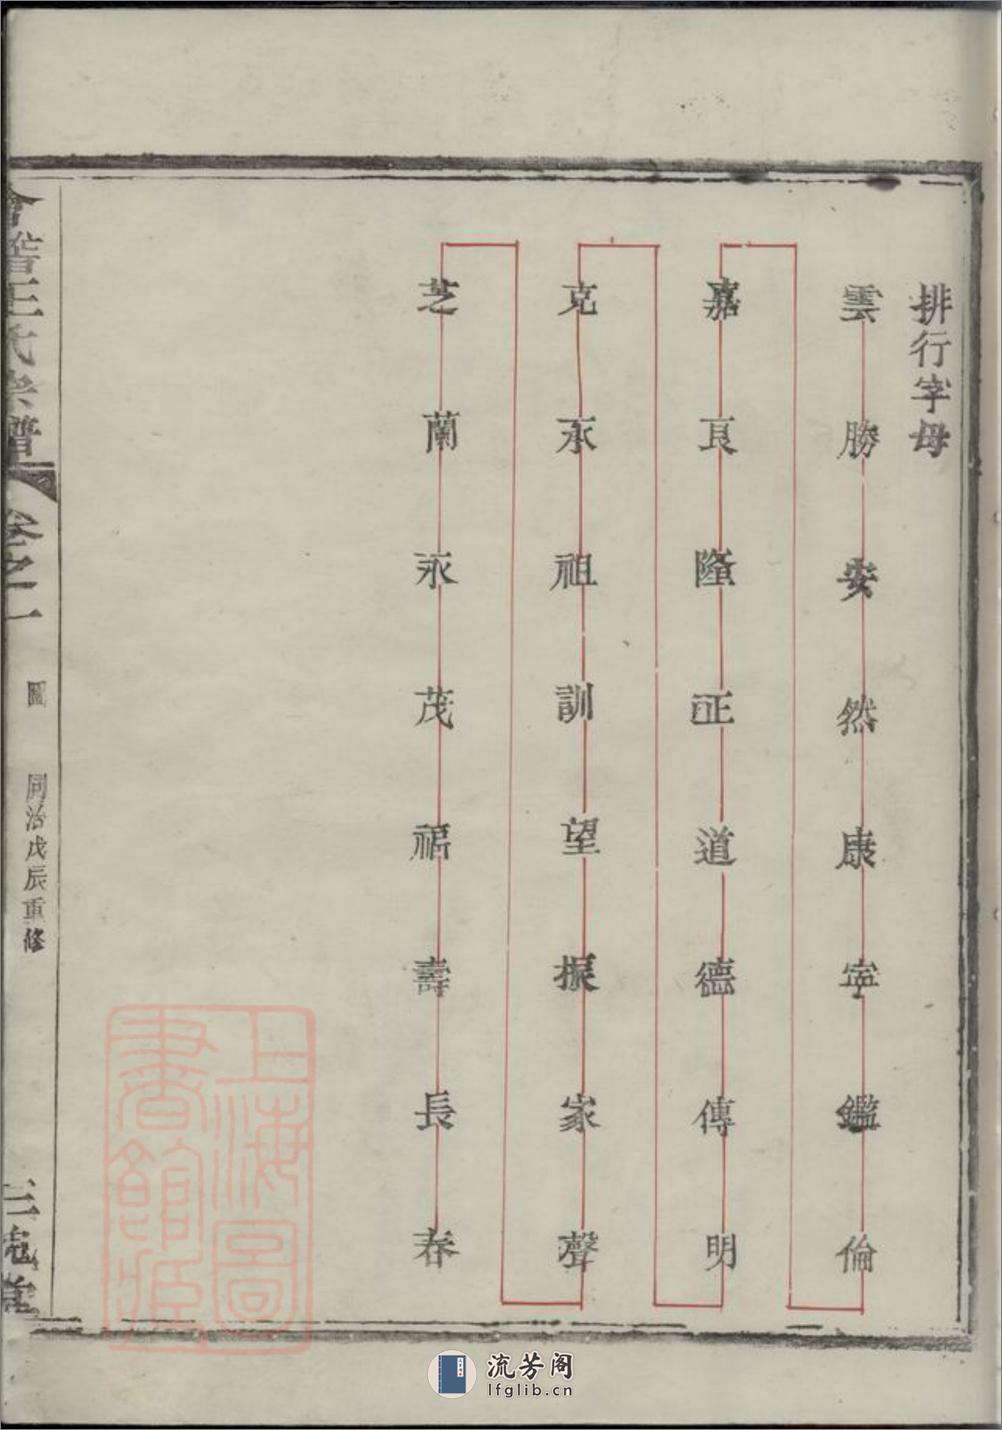 排行字母
雲勝安然康寧鑑倫
嘉良隆正道德傳明
克承祖訓望振家聲
芝蘭永茂福壽長春
會稽王氏宗譜
卷之一
圖
同治戊辰重修
三槐堂
上海圖書館藏
流芳阁
lfglib.cn